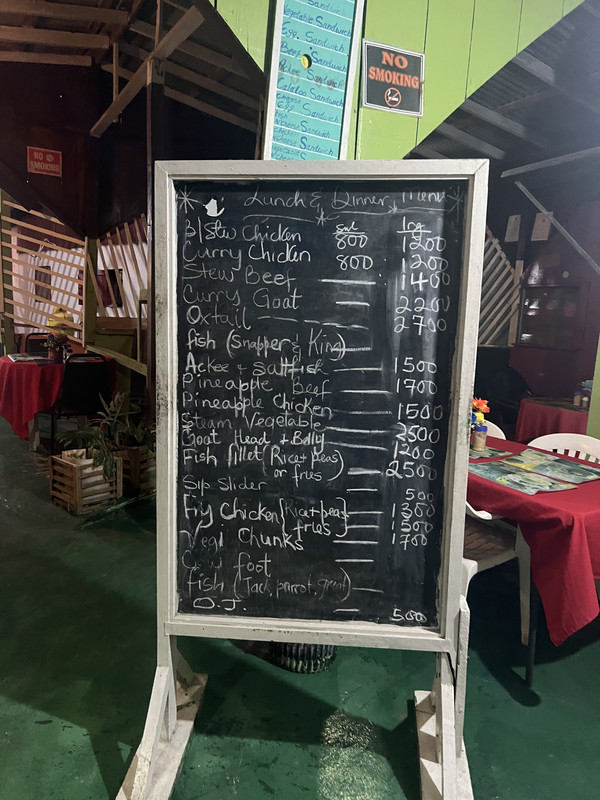 Sandwich
Vegetable Sandwich
Egg Sandwich
Beef Sandwich
Sandwich
Calaloo Sandwich
Sandwich
Sandwich
NO
SMOKING
NO
SMOKING
* Lunch & Dinner Menu *
sml lrg
B/Stew Chicken 800 1200
Curry Chicken 800 1200
Stew Beef — 1400
Curry Goat — 2200
Oxtail — 2700
fish (Snapper & King) —
Ackee + saltfish — 1500
Pineapple Beef — 1700
Pineapple Chicken — 1500
Steam Vegetable —
Goat Head + Belly — 2500
Fish fillet (Rice + peas — 1200
or fries) — 2500
Sip Slider — 500
Fry Chicken [Rice + peas — 1300
fries] — 1500
Vegi Chunks — 1700
foot —
fish (Jack, parrot, grunt) —
O.J. — 500